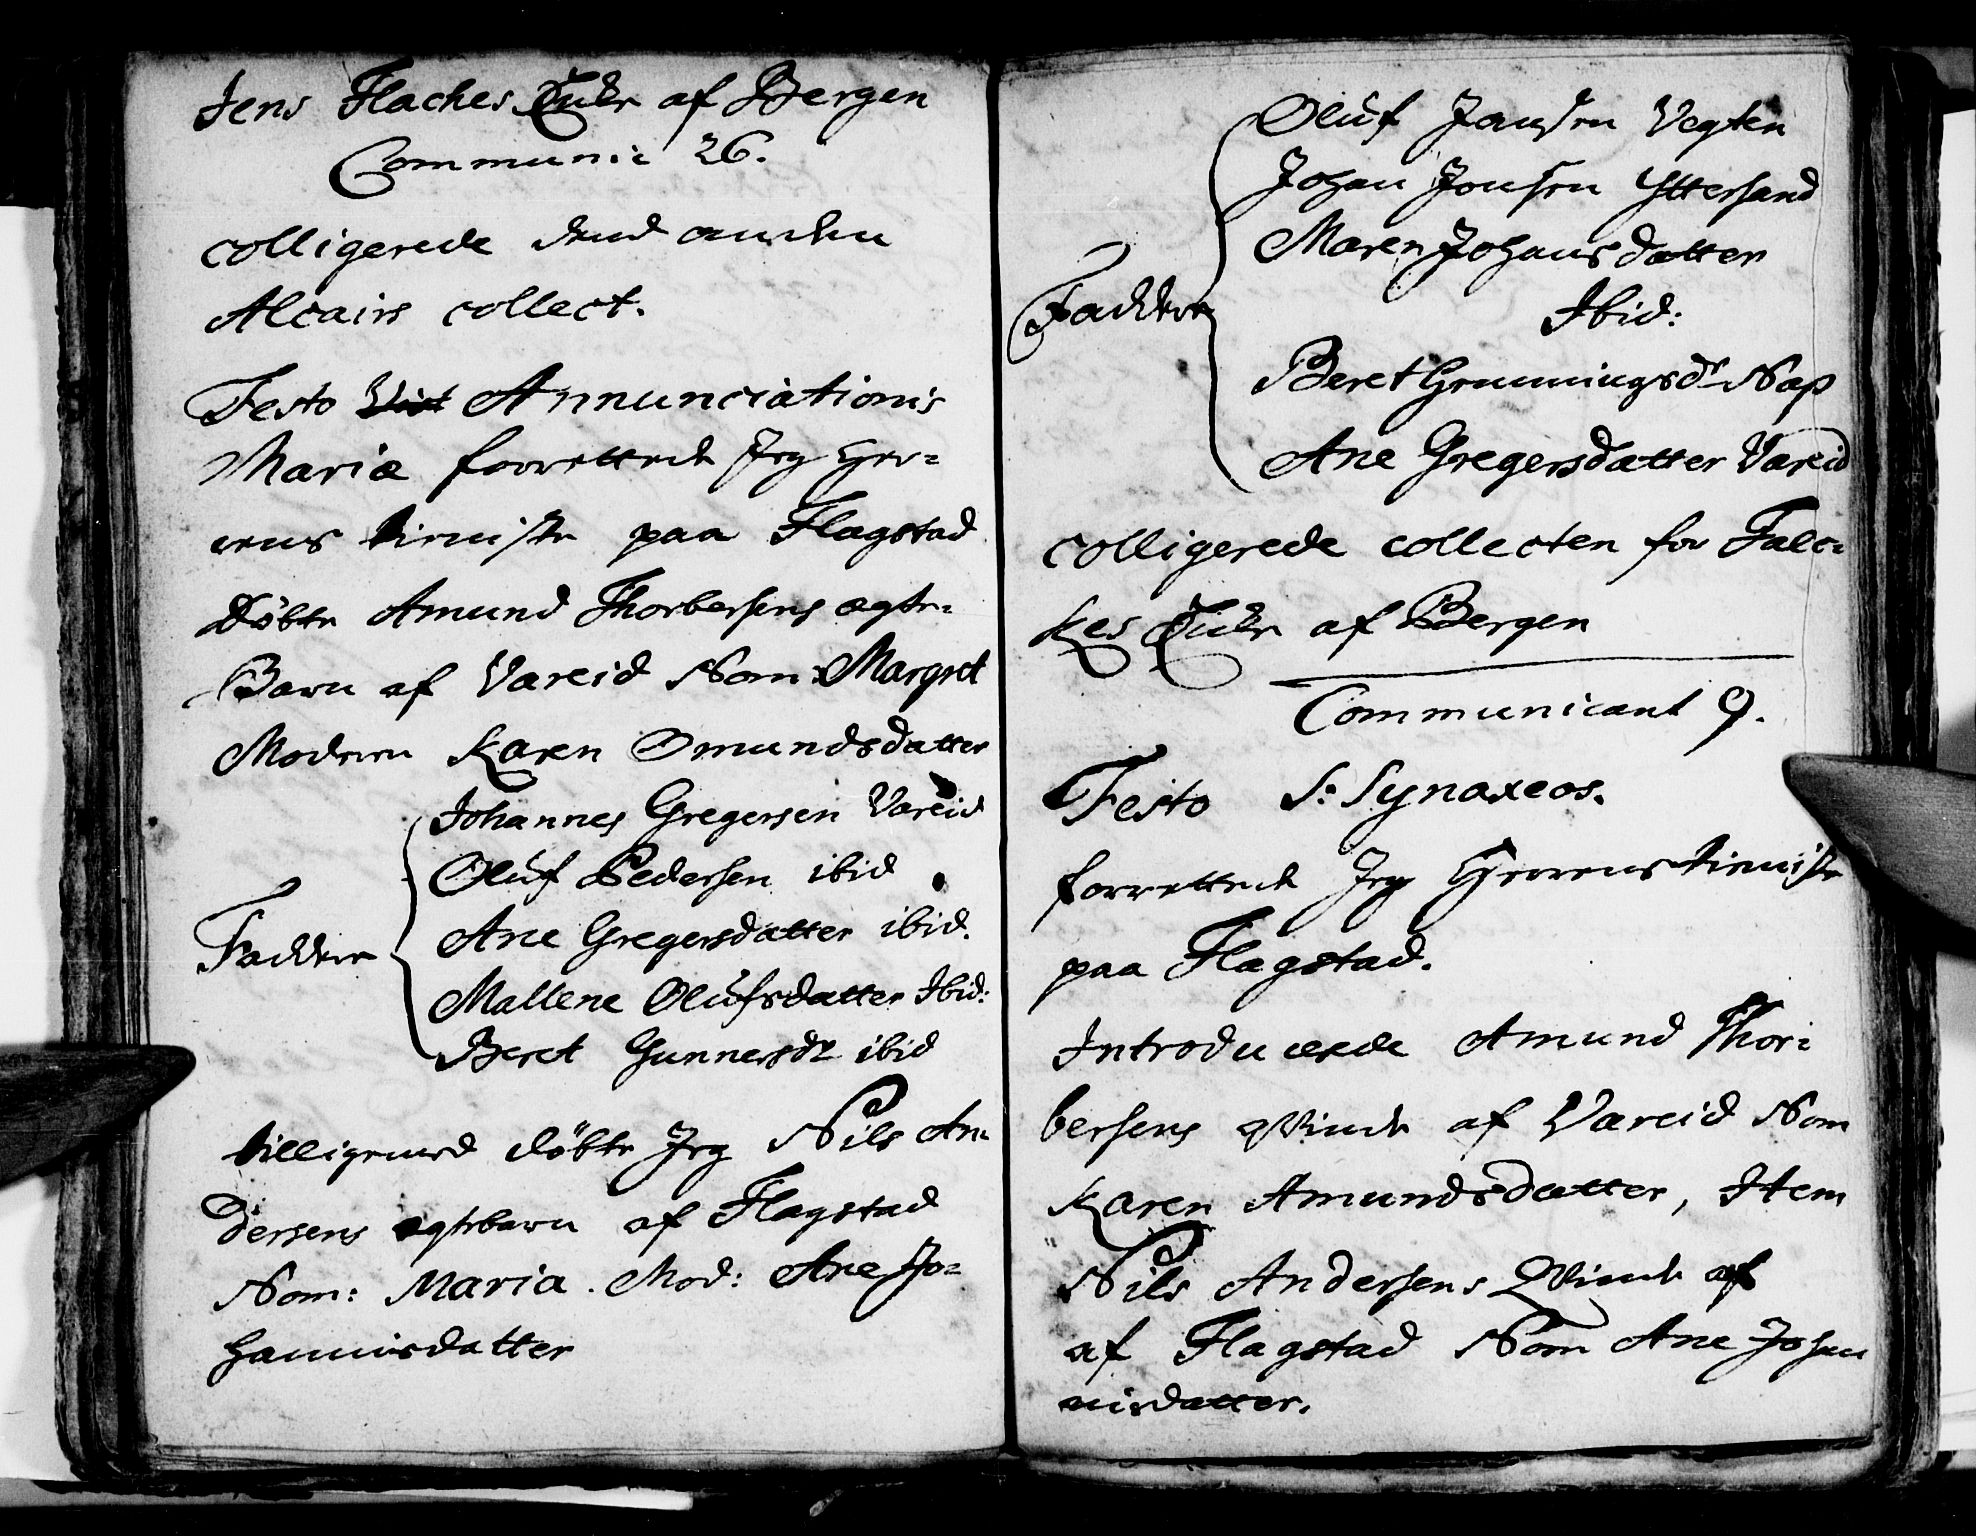 Jens Flaches Enke af Bergen
Communic 26.
colligerede dend anden
Alcairs collect.
Festo Annunciationis
Mariæ forrettede Jeg Her-
rens tieniste paa Flagstad
Døbte Amund Thorbersens ægte-
Barn af Vareid Nom: Margret
Moderen Karen Omundsdatter
Johannes Gregersen Vareid
Oluf Pedersen ibid
Ane Gregersdatter ibid.
Faddere
Mallene Olufsdatter Ibid:
Beret Gunnersdr ibid
tilligemed døbte Jeg Nils An
dersens egtebarn af Flagstad
Nom: Maria. Mod: Ane Jo-
hannisdatter
Oluf Jansen Vegten
Johan Jonsen Yttersand
Maren Johansdatter
Faddere
Ibid:
Beret Grunningsdr Nap
Ane Gregersdatter Vareid
colligerede collecten for Falc-
kes Enke af Bergen
Communicant 9.
Festo S: Synaxeos.
forrettede Jeg Herrens tieniste
paa Flagstad.
Introducerede Amund Thor-
bersens qvinde af Vareid Nom
Karen Amundsdatter, Item
Nils Andersens Qvinde af
af Flagstad Nom Ane Johan
nisdatter.